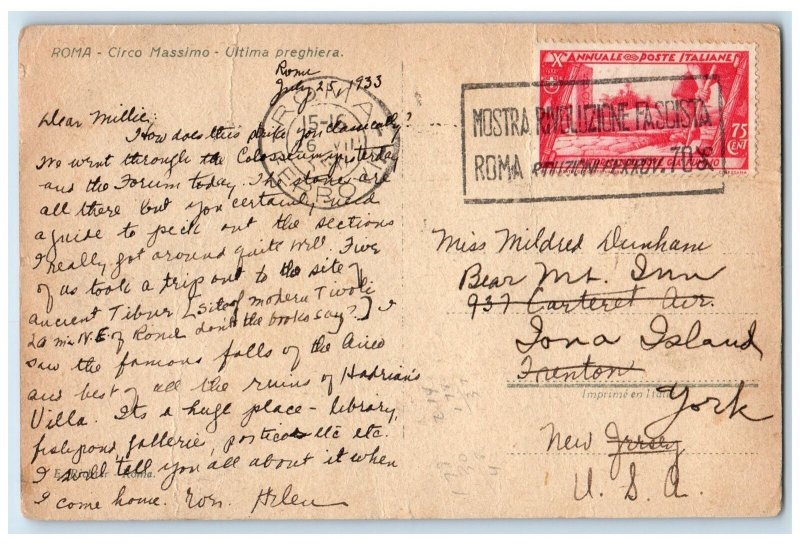 ROMA - Circo Massimo - Ultima preghiera.
Rome
July 25, 1933
Dear Millie:
How does this strike you classically?
We went through the Colosseum yesterday
and the Forum today. The stones are
all there but you certainly need
a guide to pick out the sections
I really got around quite well. Five
of us took a trip out to the site
ancient Tibur [site of modern Tivoli
20 mi N.E. of Rome don't the books say?] I
saw the famous falls of the
and best of all the ruins of Hadrian's
Villa. Its a huge place - library,
fishponds galleries, etc etc.
I shall tell you all about it when
I come home. Helen
Roma.
ROMA
15-16
X ANNUALE POSTE ITALIANE
75
CENT
MOSTRA RIVOLUZIONE FASCISTA
ROMA 70%
Miss Mildred Dunham
Bear Mt. Inn
937 Carteret Av.
Iona Island
Trenton
Imprimé en Italie
York
New Jersey
U. S. A.